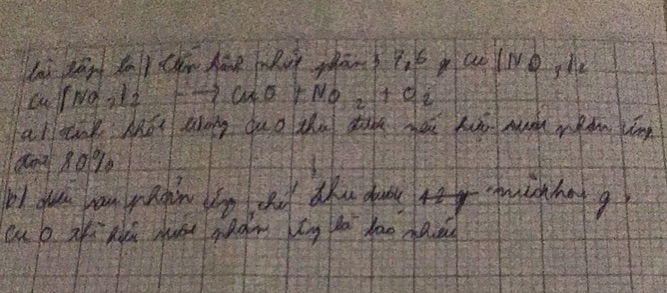 bài tập tiến hành nhiệt phân 37,6 g Cu(NO3)2
Cu(NO3)2 → CuO + NO2 + O2
a) tính khối lượng CuO thu được nếu hiệu suất phản ứng
80%
b) sau phản ứng chỉ thu được g
CuO thì hiệu suất phản ứng là bao nhiêu